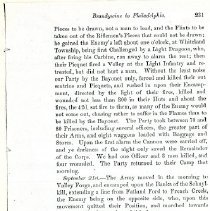 Brandywine to Philadelphia. 251
Pieces to be drawn, not a man to load, and the Flints to be
taken out of the Riflemen's Pieces that could not be drawn;
he gained the Enemy's left about one o'clock, at Whitland
Township, being first Challenged by a Light Dragoon, who,
after firing his Carbine, ran away to alarm the rest; then
their Picquet fired a Volley at the Light Infantry and re-
treated, but did not hurt a man. Without the least noise
our Party by the Bayonet only, forced and killed their out
sentries and Picquets, and rushed in upon their Encamp-
ment, directed by the light of their fires, killed and
wounded not less than 300 in their Huts and about the
fires, the 42d, set fire to them, as many of the Enemy would
not come out, chusing rather to suffer in the Flames than to
be killed by the Bayonet. The Party took between 70 and
80 Prisoners, including several officers, the greater part of
their Arms, and eight waggons loaded with Baggage and
Stores. Upon the first alarm the Cannon were carried off,
and ye darkness of the night only saved the Remainder
of the Corps. We had one Officer &amp; 3 men killed, and
four wounded. The Party returned to their Camp that
morning.
September 21st.—The Army moved in the morning to
Valley Forge, and encamped upon the Banks of the Schuyl-
kill, extending a line from Fatland Ford to French Creek,
the Enemy being on the opposite side, who, upon this
movement quitted their Position, and marched towards